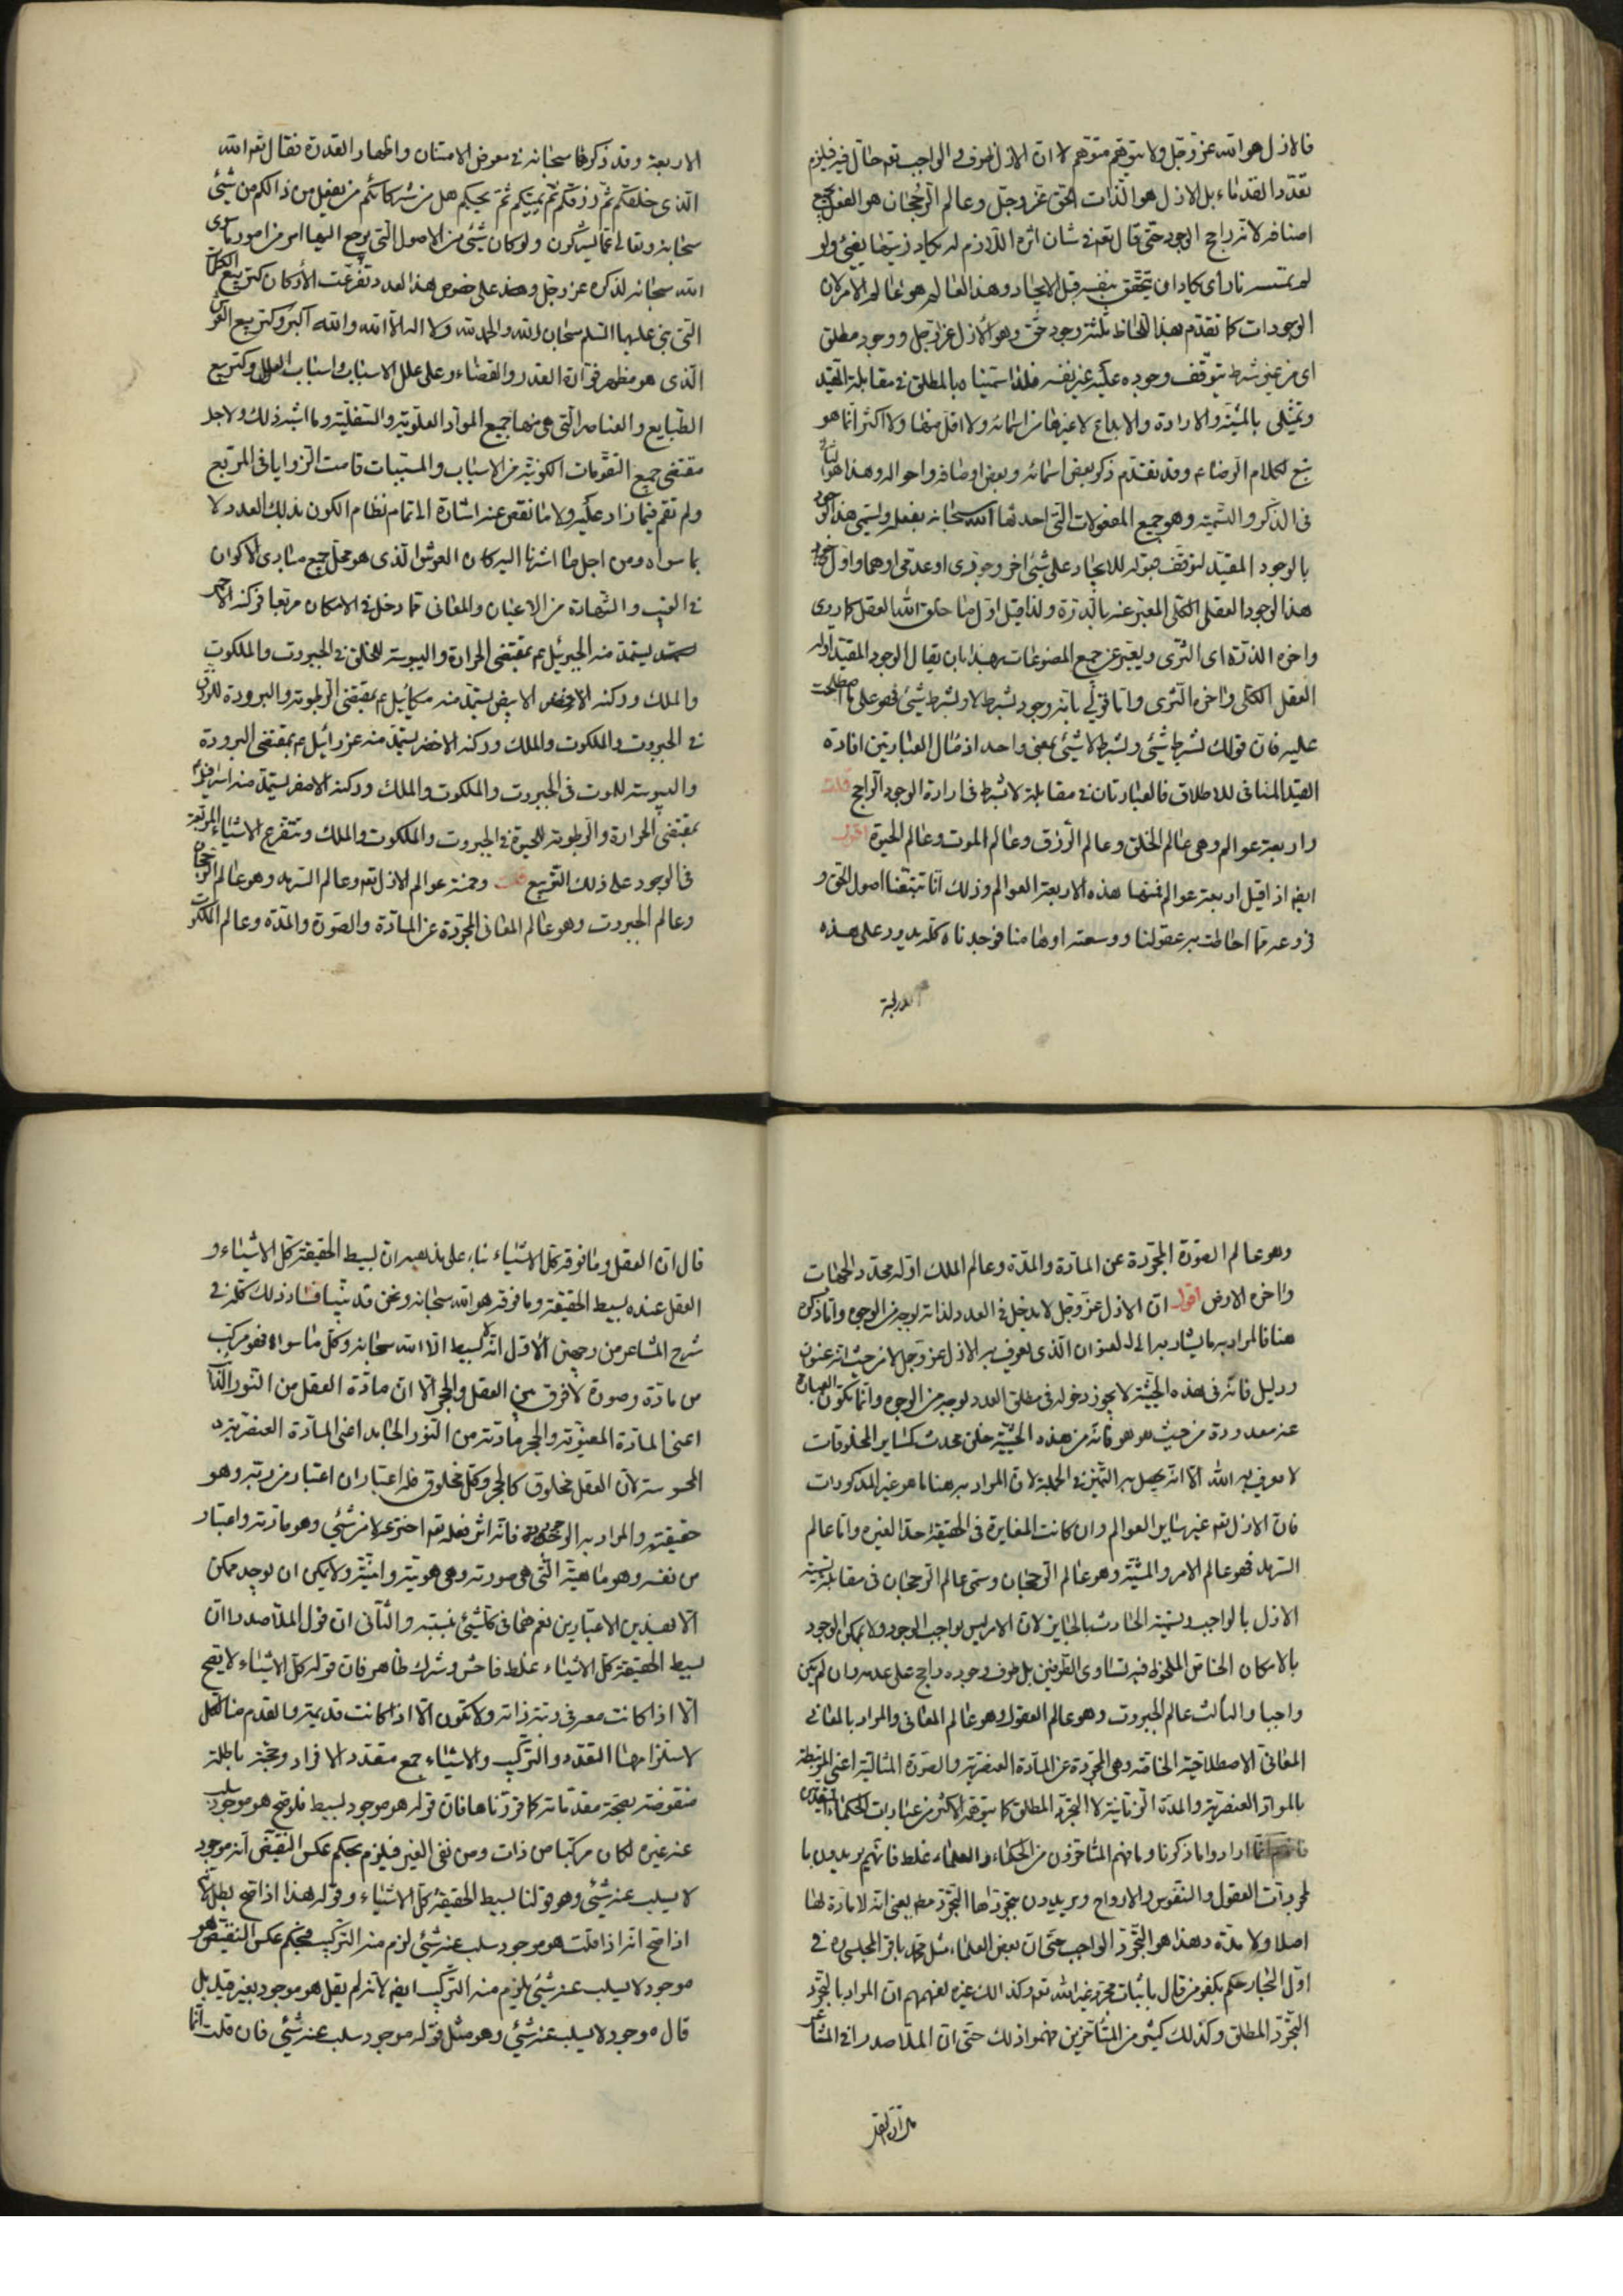 فالازل هو الله عز وجل ولا يتوهم متوهم ان الازل ظرف والواجب تعه حالّ فيه فيلزم
تعدد القدماء بل الازل هو الذات الحق عز وجل وعالم الرجحان هو الفعل بجميع
اصنافه لانه راجح الوجود حتى قال تعه في شان اثره اللازم له يكاد زيتها يضئ ولو
لم تمسسه نار اى يكاد ان يتحقق بنفسه قبل الايجاد وهذا العالم هو عالم الامر لان
الوجودات كما تقدم بهذا اللحاظ ثلثة وجود حق وهو الازل عز وجل ووجود مطلق
اى من غير شرط يتوقف وجوده عليه غير نفسه فلذا سميناه بالمطلق في مقابلة المقيد
وتمثلى بالمشية والارادة والابداع لا غيرها من اسمائه ولا اقل منها ولا اكثر انما هو
تبع لكلام الرضا عم وقد تقدم ذكر بعض اسمائه وبعض اوصافه واحواله وهذا هو
في الذكر والتسمية وهو جميع المفعولات التى احدثها الله سبحانه بفعله ويسمى هذا الوجود
بالوجود المقيد لتوقف قبوله للايجاد على شئ اخر وجودى او عدمى او هما واول
هذا الوجود العقل الكلى المعبر عنه بالدرة ولذا قيل اول ما خلق الله العقل كما روى
واخره الذرة اى الثرى ويعبر عن جميع المصنوعات بهذا بان يقال الوجود المقيد اوله
العقل الكلى واخره الثرى واما قولى بانه وجود بشرط لا وبشرط شئ فهو على ما اصطلحت
عليه فان قولك بشرط شئ وبشرط لا شئ بمعنى واحد اذ مآل العبارتين افادة
القيد المنافى للاطلاق فالعبارتان في مقابلة لا بشرط في ارادة الوجود الراجح قلت
واربعة عوالم وهى عالم الخلق وعالم الرزق وعالم الموت وعالم الحيوة اقول
ايضا اذا قيل اربعة عوالم فمنها هذه الاربعة العوالم وذلك انا تتبعنا اصول الحق و
فروعه مما احاطت به عقولنا ووسعته اوهامنا فوجدناه كله يدور على هذه
الاربعة وقد ذكرها سبحانه في معرض الامتنان واظهار القدرة فقال تعه الله
الذى خلقكم ثم رزقكم ثم يميتكم ثم يحييكم هل من شركائكم من يفعل من ذالكم من شئ
سبحانه وتعالى عما يشركون ولو كان شئ من الاصول التى يرجع اليها امر من امور ما سوى
الله سبحانه لذكره عز وجل وهذا على خصوص هذا العدد تفرعت الأركان كتربيع الكلمات
التى بنى عليها الاسلام سبحان الله والحمد لله ولا اله الا الله والله اكبر وكتربيع العرش
الذى هو مظهر القدر والقضاء وعلى علل الاسباب واسباب العلل وكتربيع
الطبايع والعناصر التى هى منها جميع المواد العلوية والسفلية وما اشبه ذلك ولاجل
مقتضى جميع التقومات الكونية من الاسباب والمسببات قامت الزوايا في المربع
ولم تقم فيما زاد عليه ولا ما نقص عنه اشارة الى تمام نظام الكون بذلك العدد لا
بما سواه ومن اجل ما اشرنا اليه كان العرش الذى هو محل جميع مبادى الاكوان
في الغيب والشهادة من الاعيان والمعانى مما دخل في الامكان مربعا فركنه الاحمر
يستمد منه الجبرئيل عم بمقتضى الحرارة واليبوسة للخلق في الجبروت والملكوت
والملك وركنه الابيض يستمد منه ميكائيل عم بمقتضى الرطوبة والبرودة للرزق
في الجبروت والملكوت والملك وركنه الاخضر يستمد منه عزرائيل عم بمقتضى البرودة
واليبوسة للموت في الجبروت والملكوت والملك وركنه الاصفر يستمد منه اسرافيل
بمقتضى الحرارة والرطوبة للحيوة في الجبروت والملكوت والملك وتتفرع الاشياء المربعة
في الوجود على ذلك التربيع قلت وخمسة عوالم الازل تعه وعالم السرمد وهو عالم الرجحان
وعالم الجبروت وهو عالم المعانى المجردة عن المادة والصورة والمدة وعالم الملكوت
وهو عالم الصورة المجردة عن المادة والمدة وعالم الملك اوله محدد الجهات
واخره الارض اقول ان الازل عز وجل لا يدخل في العدد لذاته لوجه من الوجوه وانما ذكره
هنا فالمراد به ما يشار به الى العنوان الذى يعرف به الازل عز وجل لا من حيث انه عنوان
ودليل فانه في هذه الحيثية لا يجوز دخوله في مطلق العدد لوجه من الوجوه وانما تكون العبارة
عنه معدودة من حيث هو هو فانه من هذه الحيثية خلق محدث كساير المخلوقات
لا يعرف به الله الا انه يحصل به التميز في الجملة لان المراد به هنا ما هو غير المذكورات
فان الازل تعه غير ساير العوالم وان كانت المغايرة في الحقيقة حد الغيره واما عالم
السرمد فهو عالم الامر والمشية وهو عالم الرجحان وسمى عالم الرجحان في مقابلة تسمية
الازل بالواجب وتسمية الحادث بالجايز لان الامر ليس بواجب الوجود ولا بممكن الوجود
بالامكان الخاص الملحوظ فيه تساوى الطرفين بل طرف وجوده راجح على عدمه وان لم يكن
واجبا والثالث عالم الجبروت وهو عالم العقول وهو عالم المعانى والمراد بالمعانى
المعانى الاصطلاحية الخاصة وهى المجردة عن المادة العنصرية والصورة المثالية اعنى المرتبطة
بالمواد العنصرية والمدة الزمانية لا التجرد المطلق كما يتوهمه الاكثر من عبارات الحكماء المتقدمين
ارادوا ما ذكرنا وما فهم المتاخرون من الحكماء والعلماء غلط فانهم يريدون با
لمجردات العقول والنفوس والارواح ويريدون بتجردها التجرد مط بمعنى انه لا مادة لها
اصلا ولا مدة وهذا هو التجرد الواجب حتى ان بعض العلماء مثل محمد باقر المجلسى ره في
اول البحار حكم بكفر من قال باثبات مجرد غير الله تعه وكذالك غيره لفهمهم ان المراد بالتجرد
التجرد المطلق وكذلك كثير من المتأخرين فهموا ذلك حتى ان الملا صدرا في المشاعر
قال ان العقل وما فوقه كل الاشياء بناء على مذهبه ان بسيط الحقيقة كل الاشياء و
العقل عنده بسيط الحقيقة وما فوقه هو الله سبحانه ونحن قد بينا فساد ذلك كله في
شرح المشاعر من وجهين الاول انه لا بسيط الا الله سبحانه وكل ما سواه فهو مركب
من مادة وصورة لا فرق بين العقل والحجر الا ان مادة العقل من النور الذائب
اعنى المادة المعنوية والحجر مادته من النور الجامد اعنى المادة العنصرية
المحسوسة لان العقل مخلوق كالحجر وكل مخلوق فله اعتباران اعتبار من ربه وهو
حقيقته والمراد به الوجود فانه اثر فعله تعه اخترعه لا من شئ وهو مادته واعتبار
من نفسه وهو ماهيته التى هى صورته وهى هويته وانيته ولا يمكن ان يوجد ممكن
الا بهذين الاعتبارين نعم هما في كل شئ بنسبته والثانى ان قول الملا صدرا ان
بسيط الحقيقة كل الاشياء غلط فاحش وشرك ظاهر فان قوله كل الاشياء لا يصح
الا اذا كانت معه في رتبة ذاته ولا تكون الا اذا كانت قديمة والقدم
لاستلزامها التعدد والتركيب والاشياء جمع متعدد الافراد وحجته باطلة
منقوضة بصحة مقدماته كما قررناها فان قوله هو موجود بسيط فلو صح هو موجود سلب
عنه غيره لكان مركبا من ذات ومن نفى الغير فيلزم بحكم عكس النقيض انه موجود
لا يسلب عنه شئ وهو قولنا بسيط الحقيقة كل الاشياء وقوله هذا اذا صح بطل
اذا صح انه اذا قلت هو موجود سلب عنه شئ لزم منه التركيب فبحكم عكس النقيض هو
موجود لا يسلب عنه شئ يلزم منه التركيب ايضا لانه لم يقل هو موجود بغير قيد بل
قال موجود لا يسلب عنه شئ وهو مثل قوله موجود سلب عنه شئ فان قلت انما